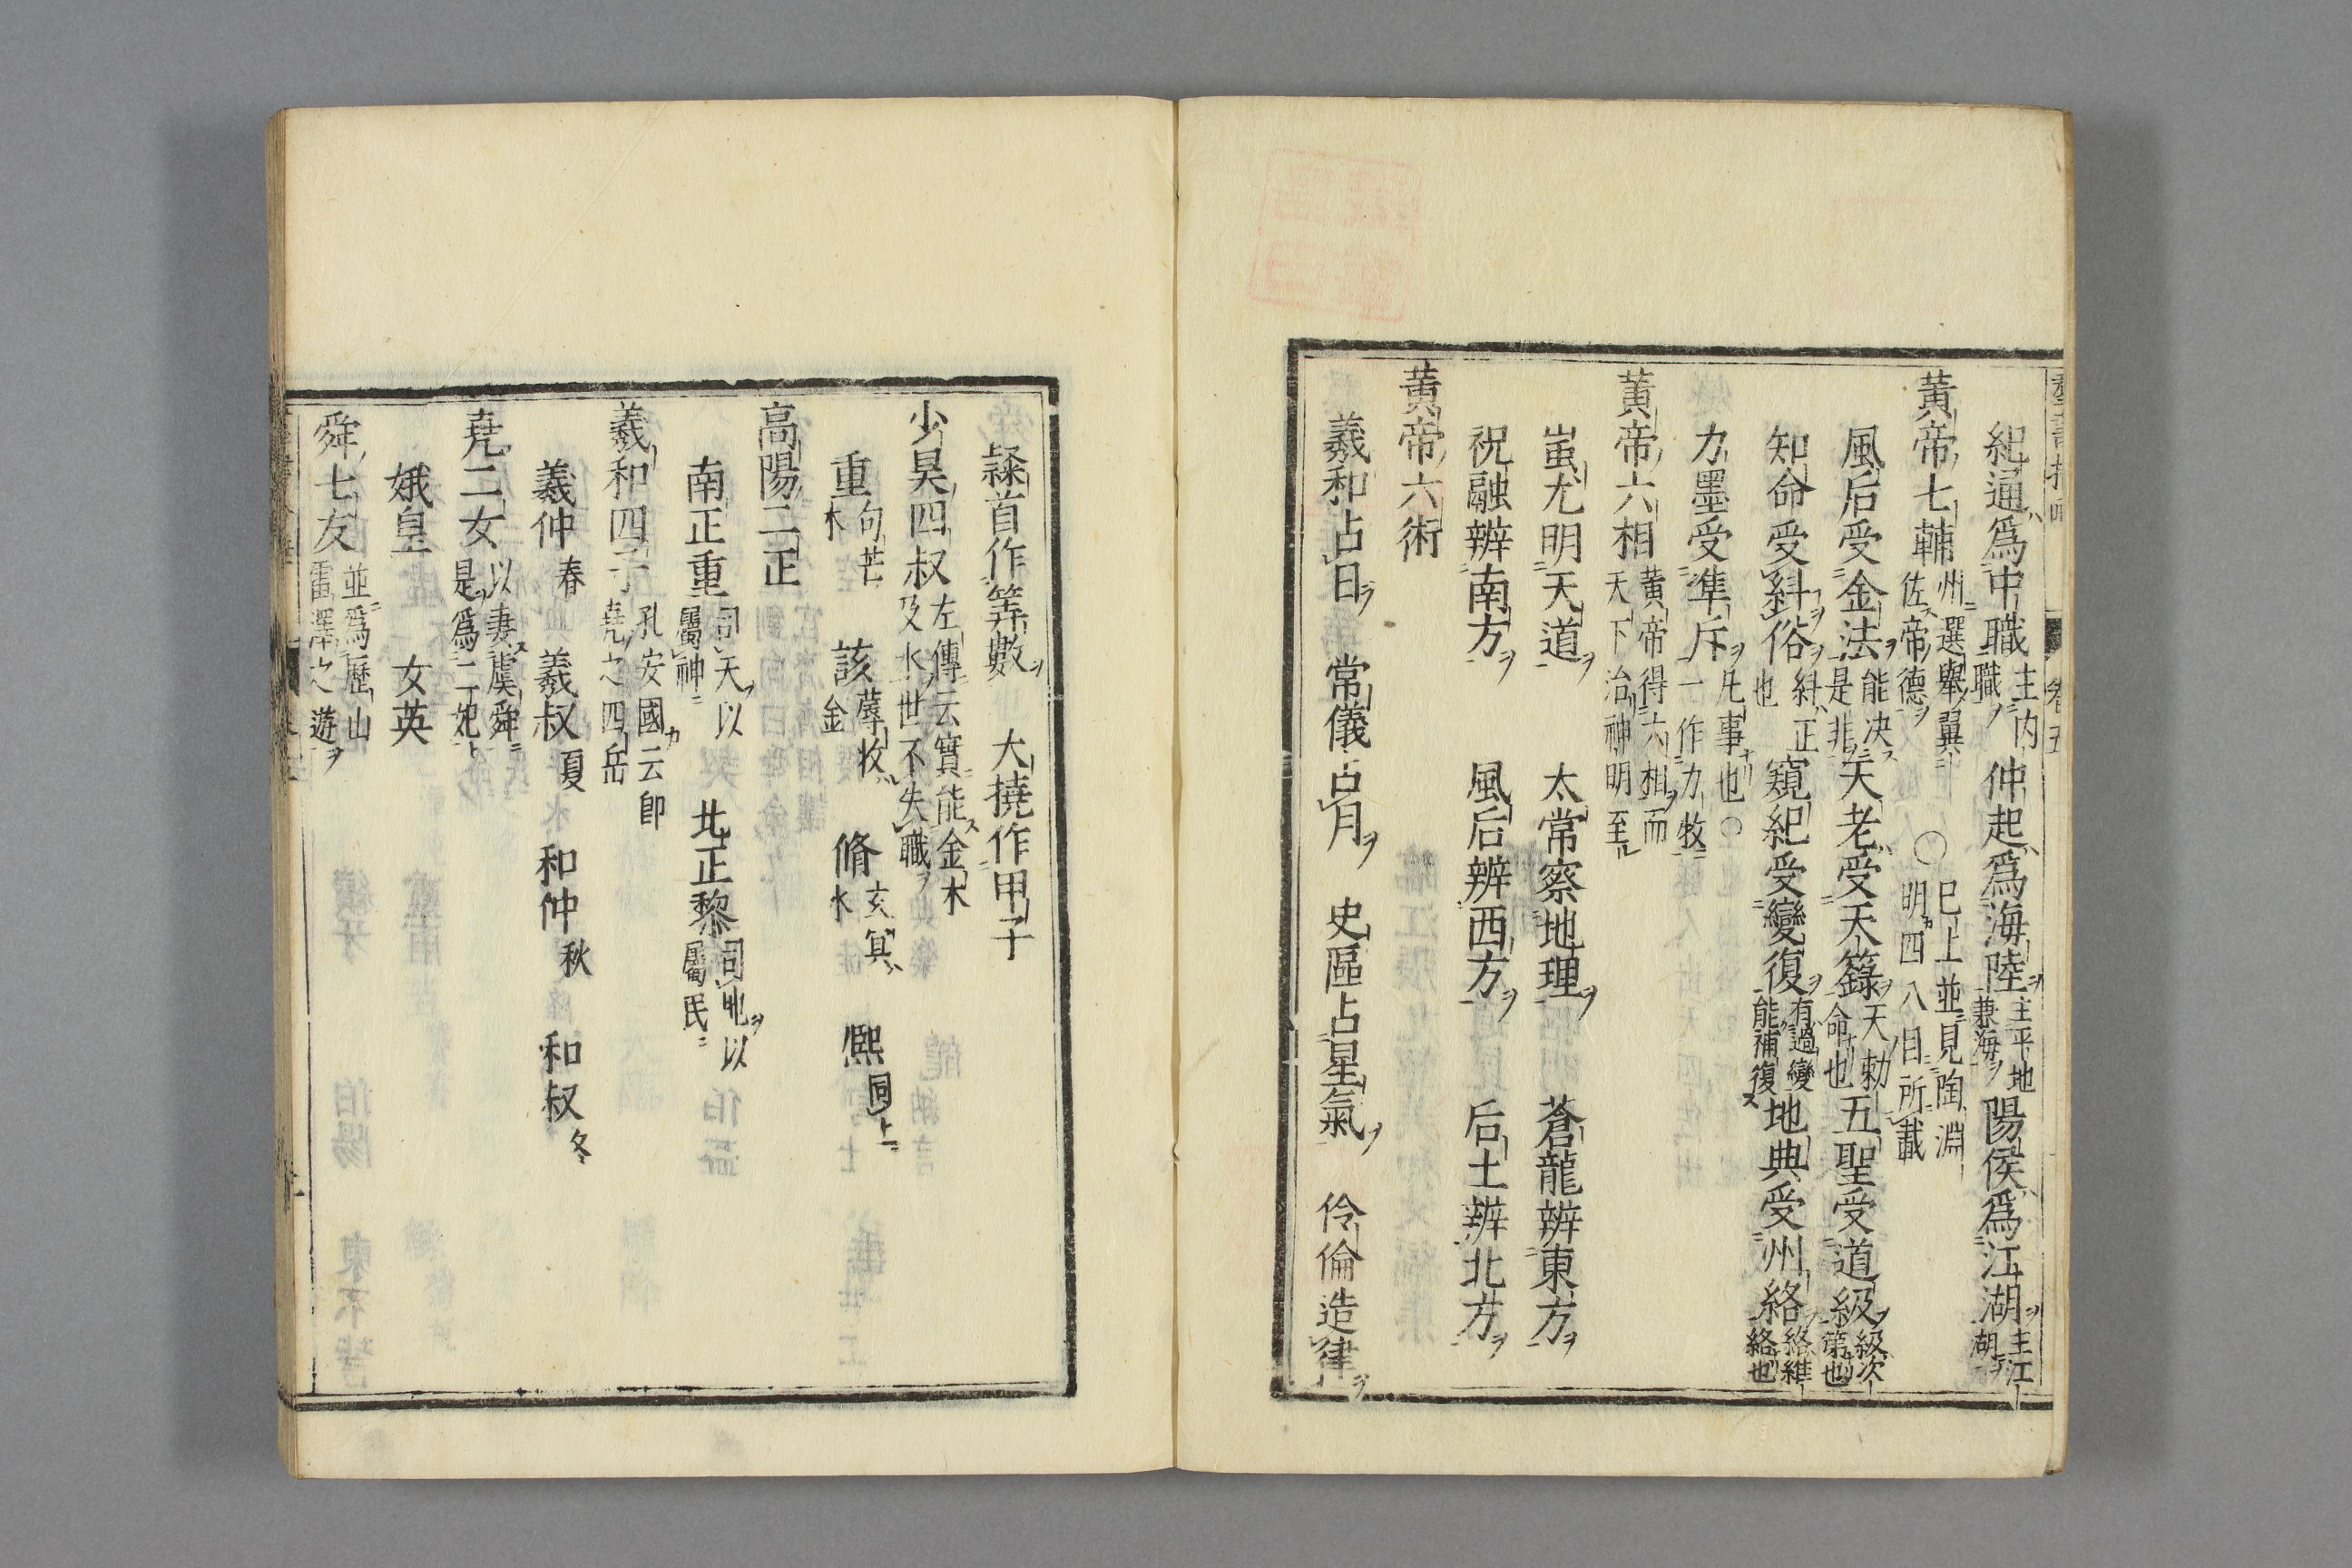 紀通爲中職主内職仲起爲海陸主平地兼海陽侯爲江湖主江湖
黃帝七輔州選舉翼佐帝德〇已上並見陶淵明四八目所載
風后受金法能決是非天老受天籙天勅命也五聖受道級級次第也
知命受糾俗糾正也窺紀受變復有過變能補復地典受州絡絡維絡也
力墨受準斥凡事也〇一作力牧
黃帝六相黃帝得六相而天下治神明至
蚩尤明天道 太常察地理 蒼龍辨東方
祝融辨南方 風后辨西方 后土辨北方
黃帝六術
羲和占日 常儀占月 史區占星氣 伶倫造律
隸首作筭數 大撓作甲子
少昊四叔左傳云實能金木及水世不失職
重句芒木 該蓐收金 脩玄冥水 熙同上
高陽二正
南正重司天以屬神 北正黎司地以屬民
羲和四子孔安國云卽堯之四岳
羲仲春 羲叔夏 和仲秋 和叔冬
堯二女以妻虞舜是爲二妃
娥皇 女英
舜七友並爲歷山雷澤之遊
卷五